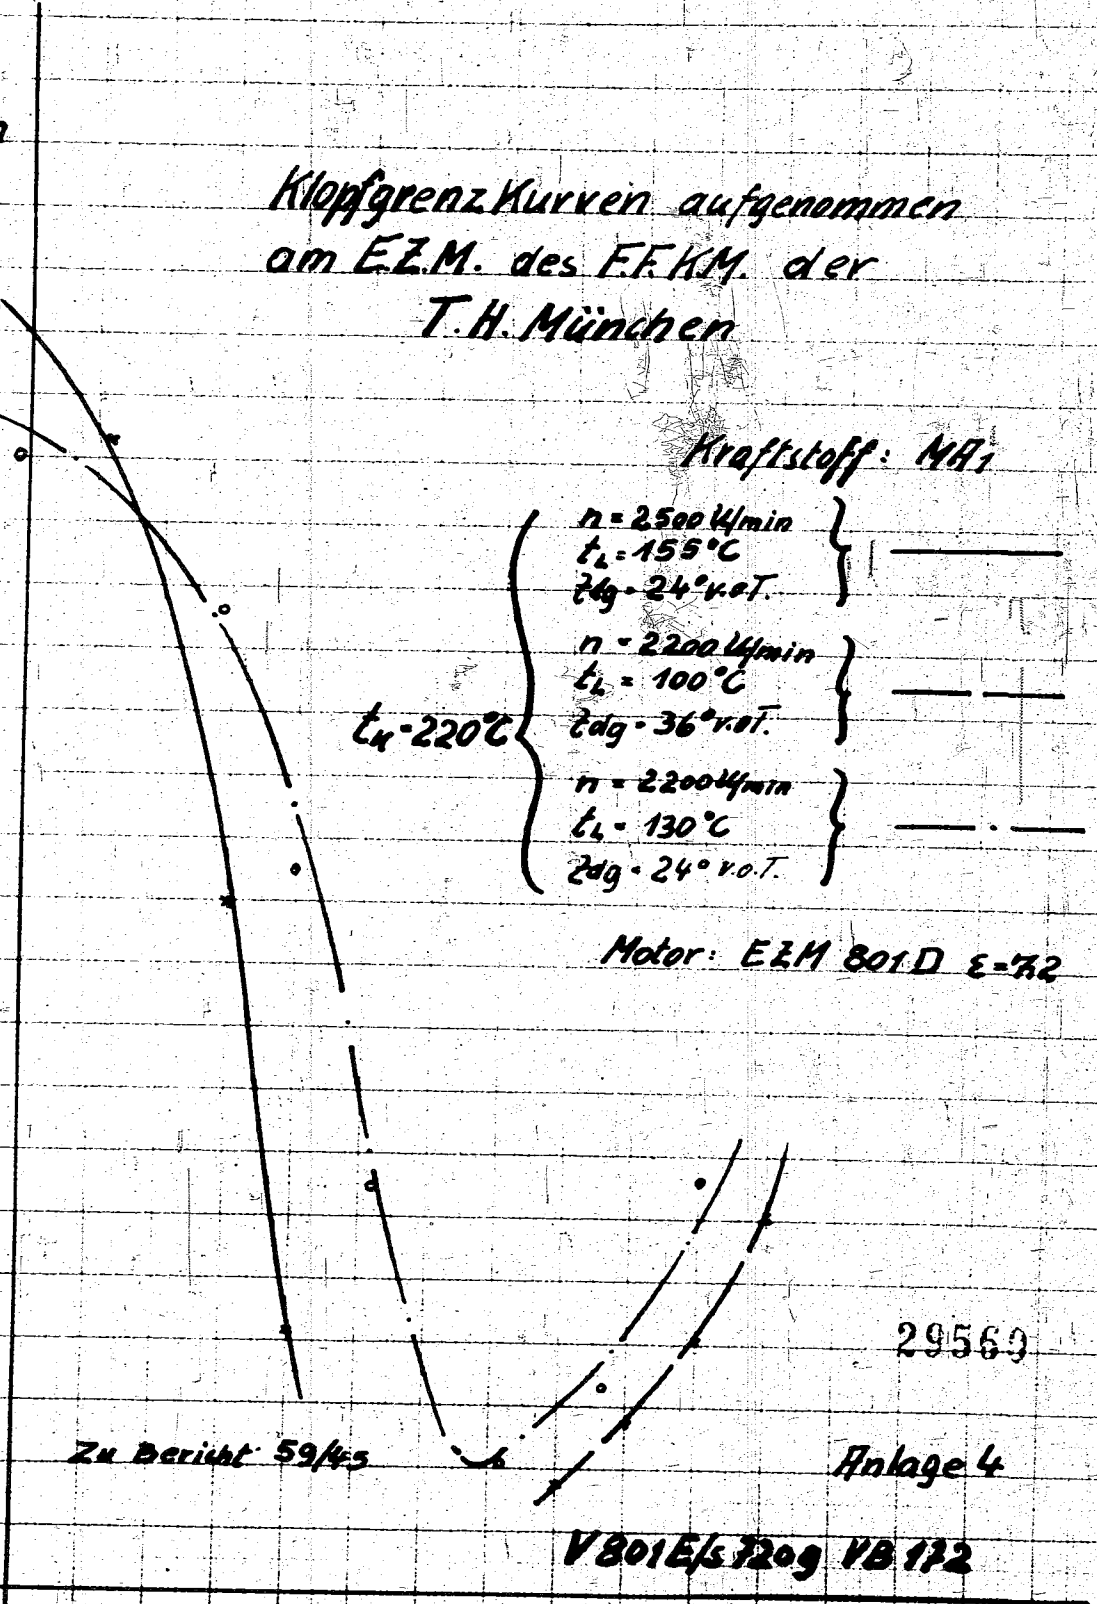 Klopfgrenz Kurven aufgenommen
am E.Z.M. des F.F.K.M. der
T.H. München
Kraftstoff: MA1
n = 2500 U/min
tL = 155°C
Zdg = 24° v.o.T.
n = 2200 U/min
tL = 100°C
Zdg = 36° v.o.T.
tK = 220°C
n = 2200 U/min
tL = 130°C
Zdg = 24° v.o.T.
Motor: EZM 801 D ε = 7,2
29569
Zu Bericht 59/45
Anlage 4
V 801 E/s 720g VB 172